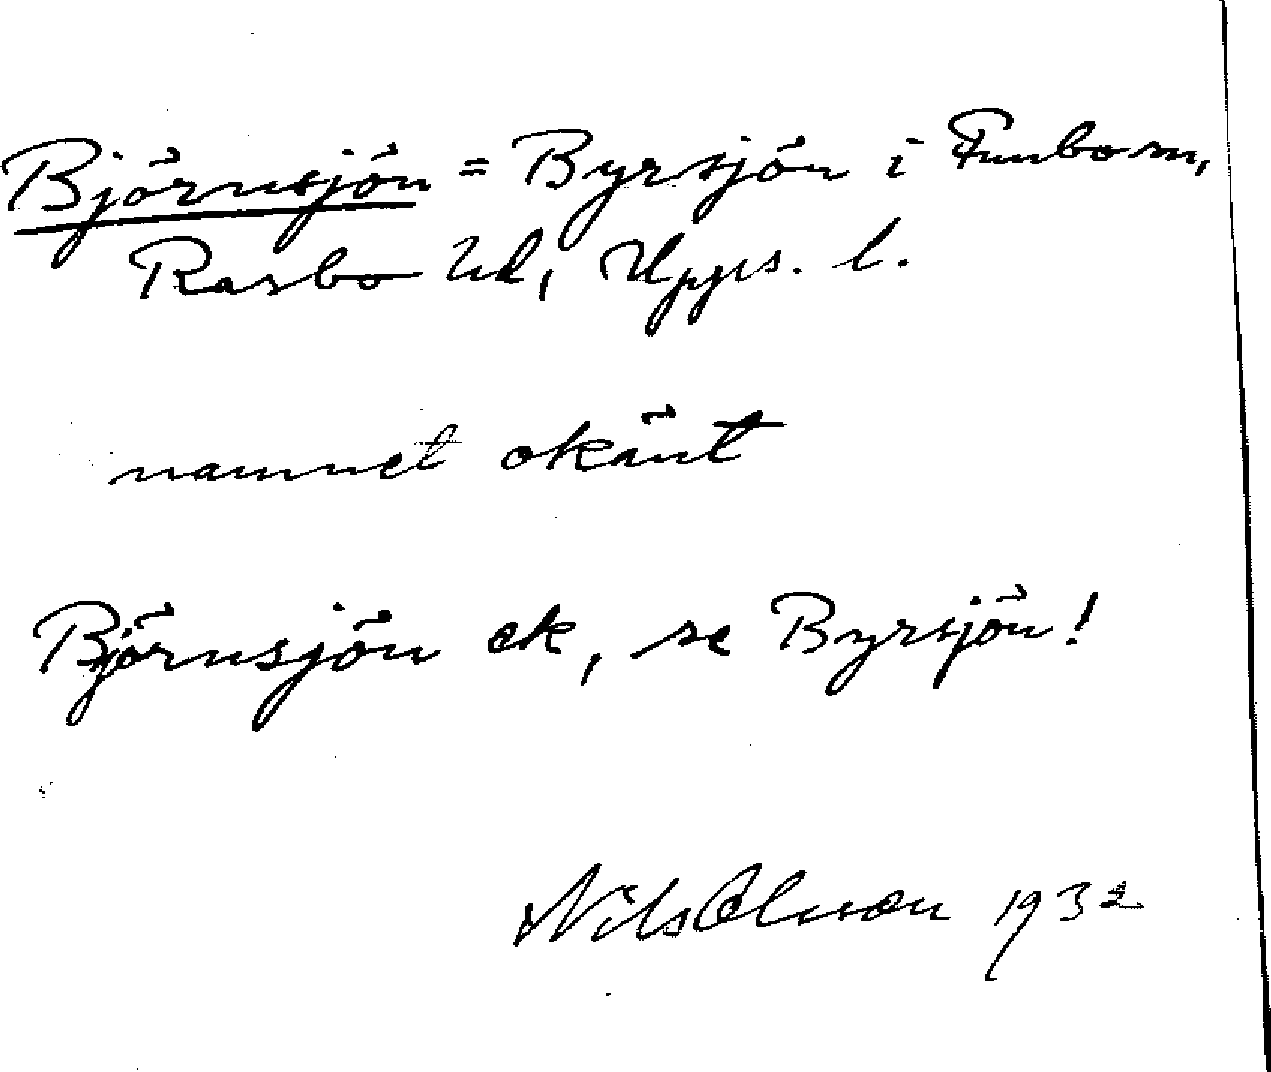 Björnsjön = Byrsjön i Funbo sn,
Rasbo hd, Upps. l.
namnet okänt
Björnsjön ek, se Byrsjön!
Nils 1932